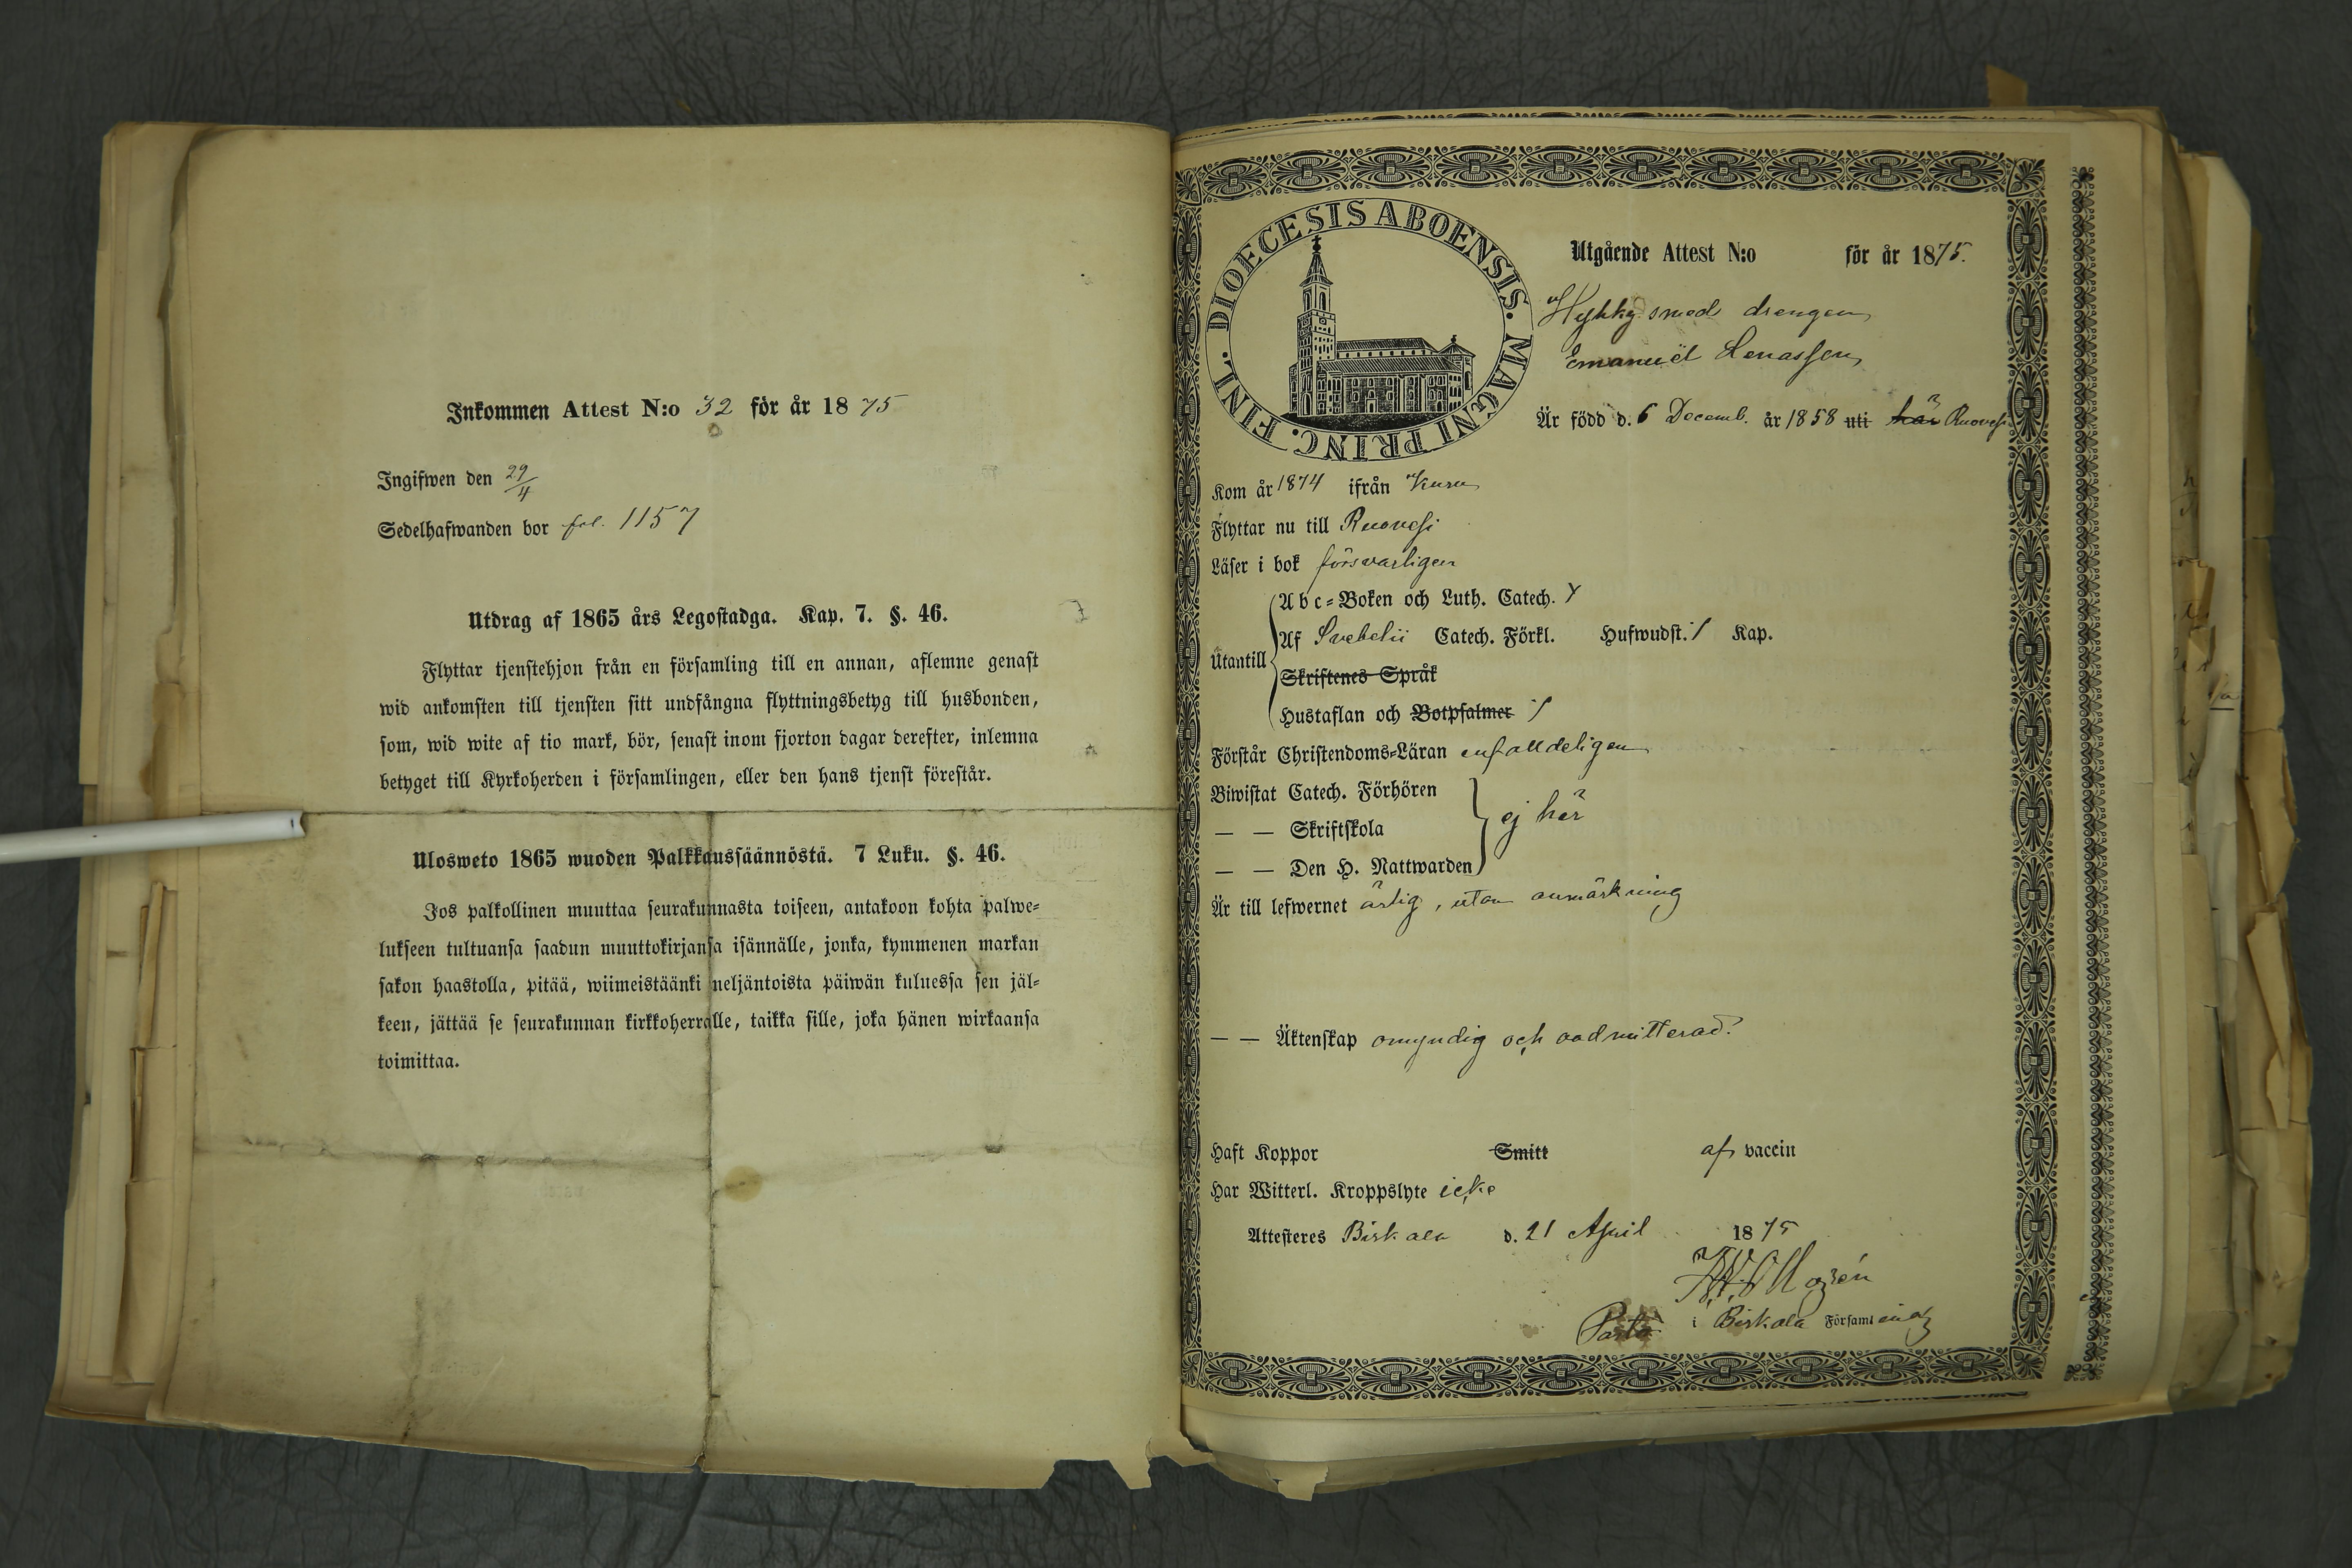 Inkommen Attest N:o 32 för år 1875
Ingifwen den 29/4
Sedelhafwanden bor fol. 1157
Utdrag af 1865 års Legostadga. Kap. 7. §. 46.
Flyttar tjenstehjon från en församling till en annan, aflemne genast
wid ankomsten till tjensten sitt undfångna flyttningsbetyg till husbonden,
som, wid wite af tio mark, bör, senast inom fjorton dagar derefter, inlemna
betyget till Kyrkoherden i församlingen, eller den hans tjenst förestår.
Ulosweto 1865 wuoden Palkkaussäännöstä. 7 Luku. §. 46.
Jos palkollinen muuttaa seurakunnasta toiseen, antakoon kohta palwe=
lukseen tultuansa saadun muuttokirjansa isännälle, jonka, kymmenen markan
sakon haastolla, pitää, wiimeistäänki neljäntoista päiwän kuluessa sen jäl=
keen, jättää se seurakunnan kirkkoherralle, taikka sille, joka hänen wirkaansa
toimittaa.
DIOECESIS ABOENSIS. MAGNI PRINC. FINL.
Utgående Attest N:o för år 1875.
Hykky smed drengen
Emanuël Lenassen
Är född d. 6 Decemb. år 1858 uti här Ruovesi
Kom år 1874 ifrån Kuru
Flyttar nu till Ruovesi
Läser i bok försvarligen
Utantill
Abc=Boken och Luth. Catech. Y
Af Svebelii Catech. Förkl. Hufwudst. Kap.
Skriftenes Språk
Hustaflan och Botpsalmer
Förstår Christendoms=Läran enfalldeligen
Biwistat Catech. Förhören
— — Skriftskola
ej här
— — Den H. Nattwarden
Är till lefwernet ärlig, utan anmärkning
— — Äktenskap omyndig och oadmitterad.
Haft Koppor Smitt af vaccin
Har Witterl. Kroppslyte icke
Attesteres Birkala d. 21 April 1875
i Birkala Församling